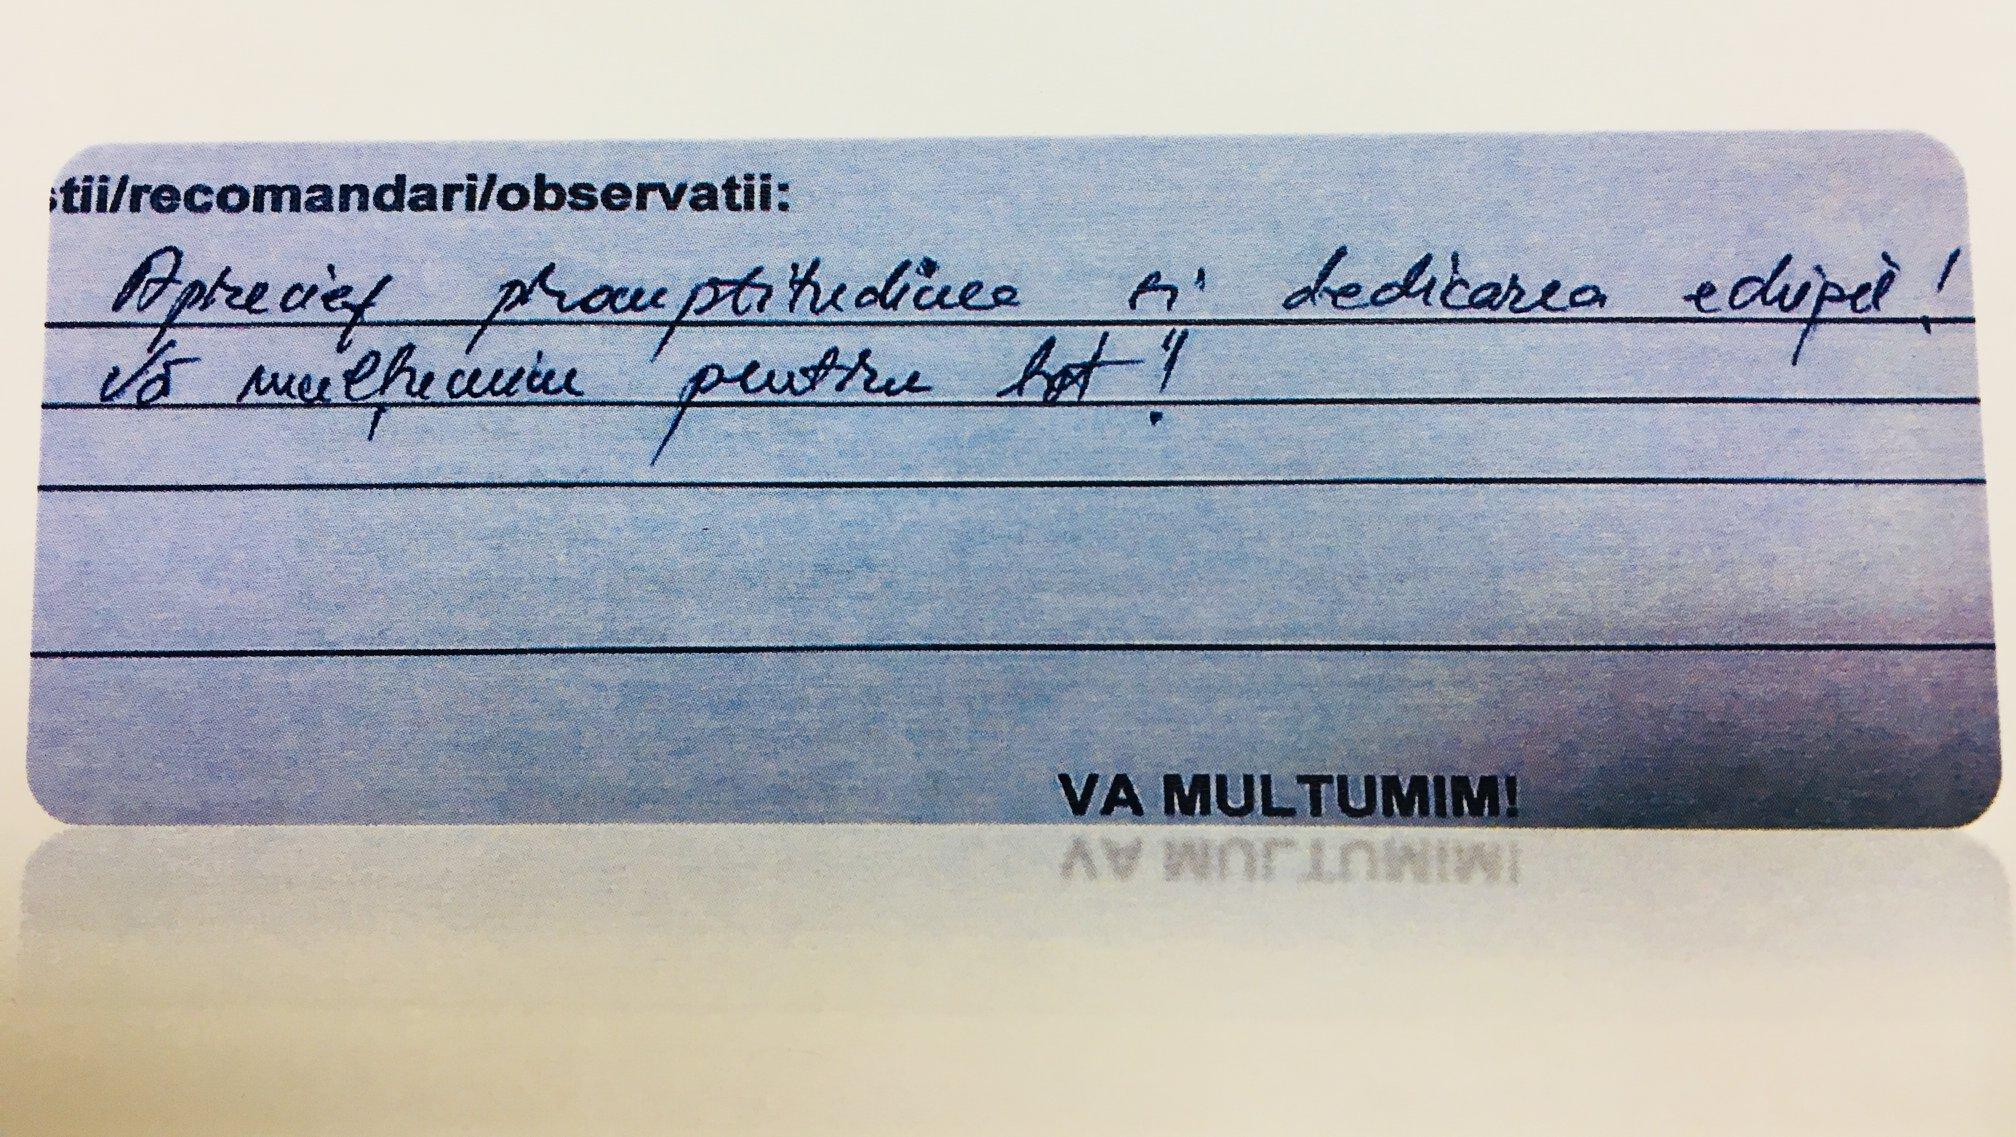 stii/recomandari/observatii:
Apreciez promptitudinea și dedicarea echipei!
Vă mulțumim pentru tot!
VA MULTUMIM!
VA MULTUMIM!